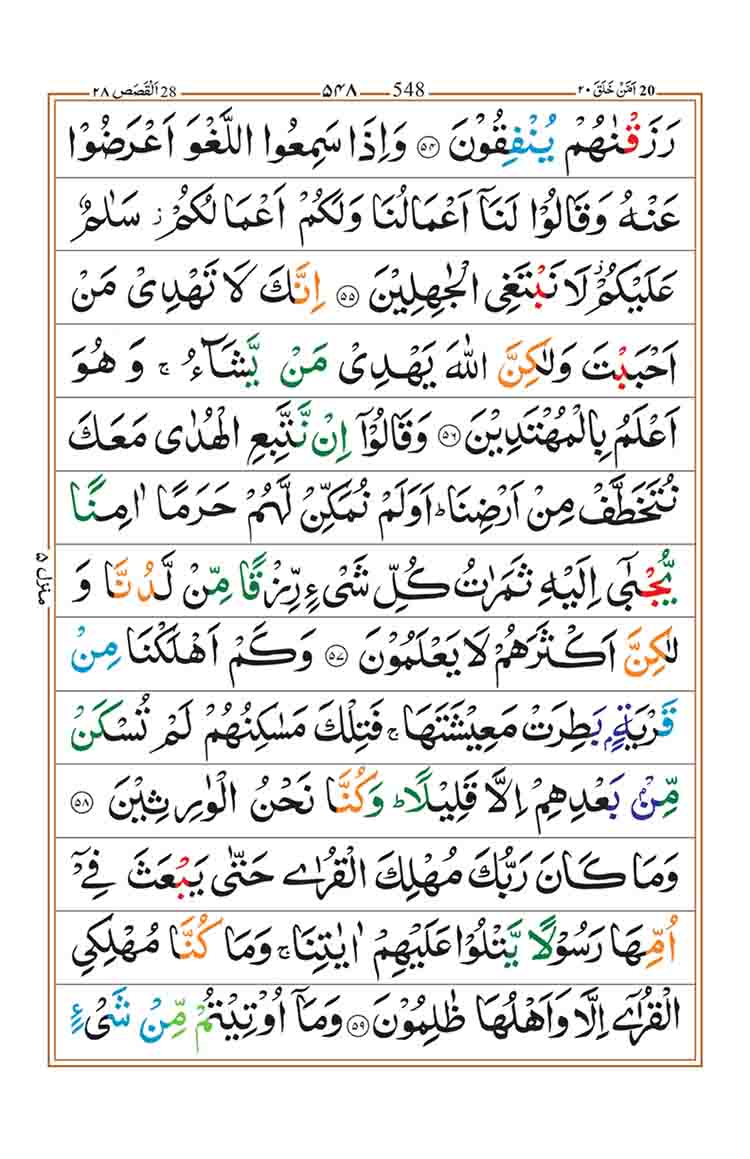 20 اَمَّنْ خَلَقَ ۲۰ 548 ۵۴۸ 28 اَلْقَصَص ۲۸
رَزَقْنٰهُمْ يُنْفِقُوْنَ ۵۴ وَاِذَا سَمِعُوا اللَّغْوَ اَعْرَضُوْا
عَنْهُ وَقَالُوْا لَنَاۤ اَعْمَالُنَا وَلَكُمْ اَعْمَالُكُمْ ؗ سَلٰمٌ
عَلَيْكُمْ ؗ لَا نَبْتَغِى الْجٰهِلِيْنَ ۵۵ اِنَّكَ لَا تَهْدِىْ مَنْ
اَحْبَبْتَ وَلٰكِنَّ اللّٰهَ يَهْدِىْ مَنْ يَّشَآءُ ۚ وَ هُوَ
اَعْلَمُ بِالْمُهْتَدِيْنَ ۵۶ وَقَالُوْۤا اِنْ نَّتَّبِعِ الْهُدٰى مَعَكَ
نُتَخَطَّفْ مِنْ اَرْضِنَا ؕ اَوَلَمْ نُمَكِّنْ لَّهُمْ حَرَمًا اٰمِنًا
يُّجْبٰٓى اِلَيْهِ ثَمَرٰتُ كُلِّ شَىْءٍ رِّزْقًا مِّنْ لَّدُنَّا وَ
لٰكِنَّ اَكْثَرَهُمْ لَا يَعْلَمُوْنَ ۵۷ وَكَمْ اَهْلَكْنَا مِنْ
قَرْيَةٍۭ بَطِرَتْ مَعِيْشَتَهَا ۚ فَتِلْكَ مَسٰكِنُهُمْ لَمْ تُسْكَنْ
مِّنْۢ بَعْدِهِمْ اِلَّا قَلِيْلًا ؕ وَكُنَّا نَحْنُ الْوٰرِثِيْنَ ۵۸
وَمَا كَانَ رَبُّكَ مُهْلِكَ الْقُرٰى حَتّٰى يَبْعَثَ فِىْۤ
اُمِّهَا رَسُوْلًا يَّتْلُوْا عَلَيْهِمْ اٰيٰتِنَا ۚ وَمَا كُنَّا مُهْلِكِى
الْقُرٰٓى اِلَّا وَاَهْلُهَا ظٰلِمُوْنَ ۵۹ وَمَاۤ اُوْتِيْتُمْ مِّنْ شَىْءٍ
منزل ۵